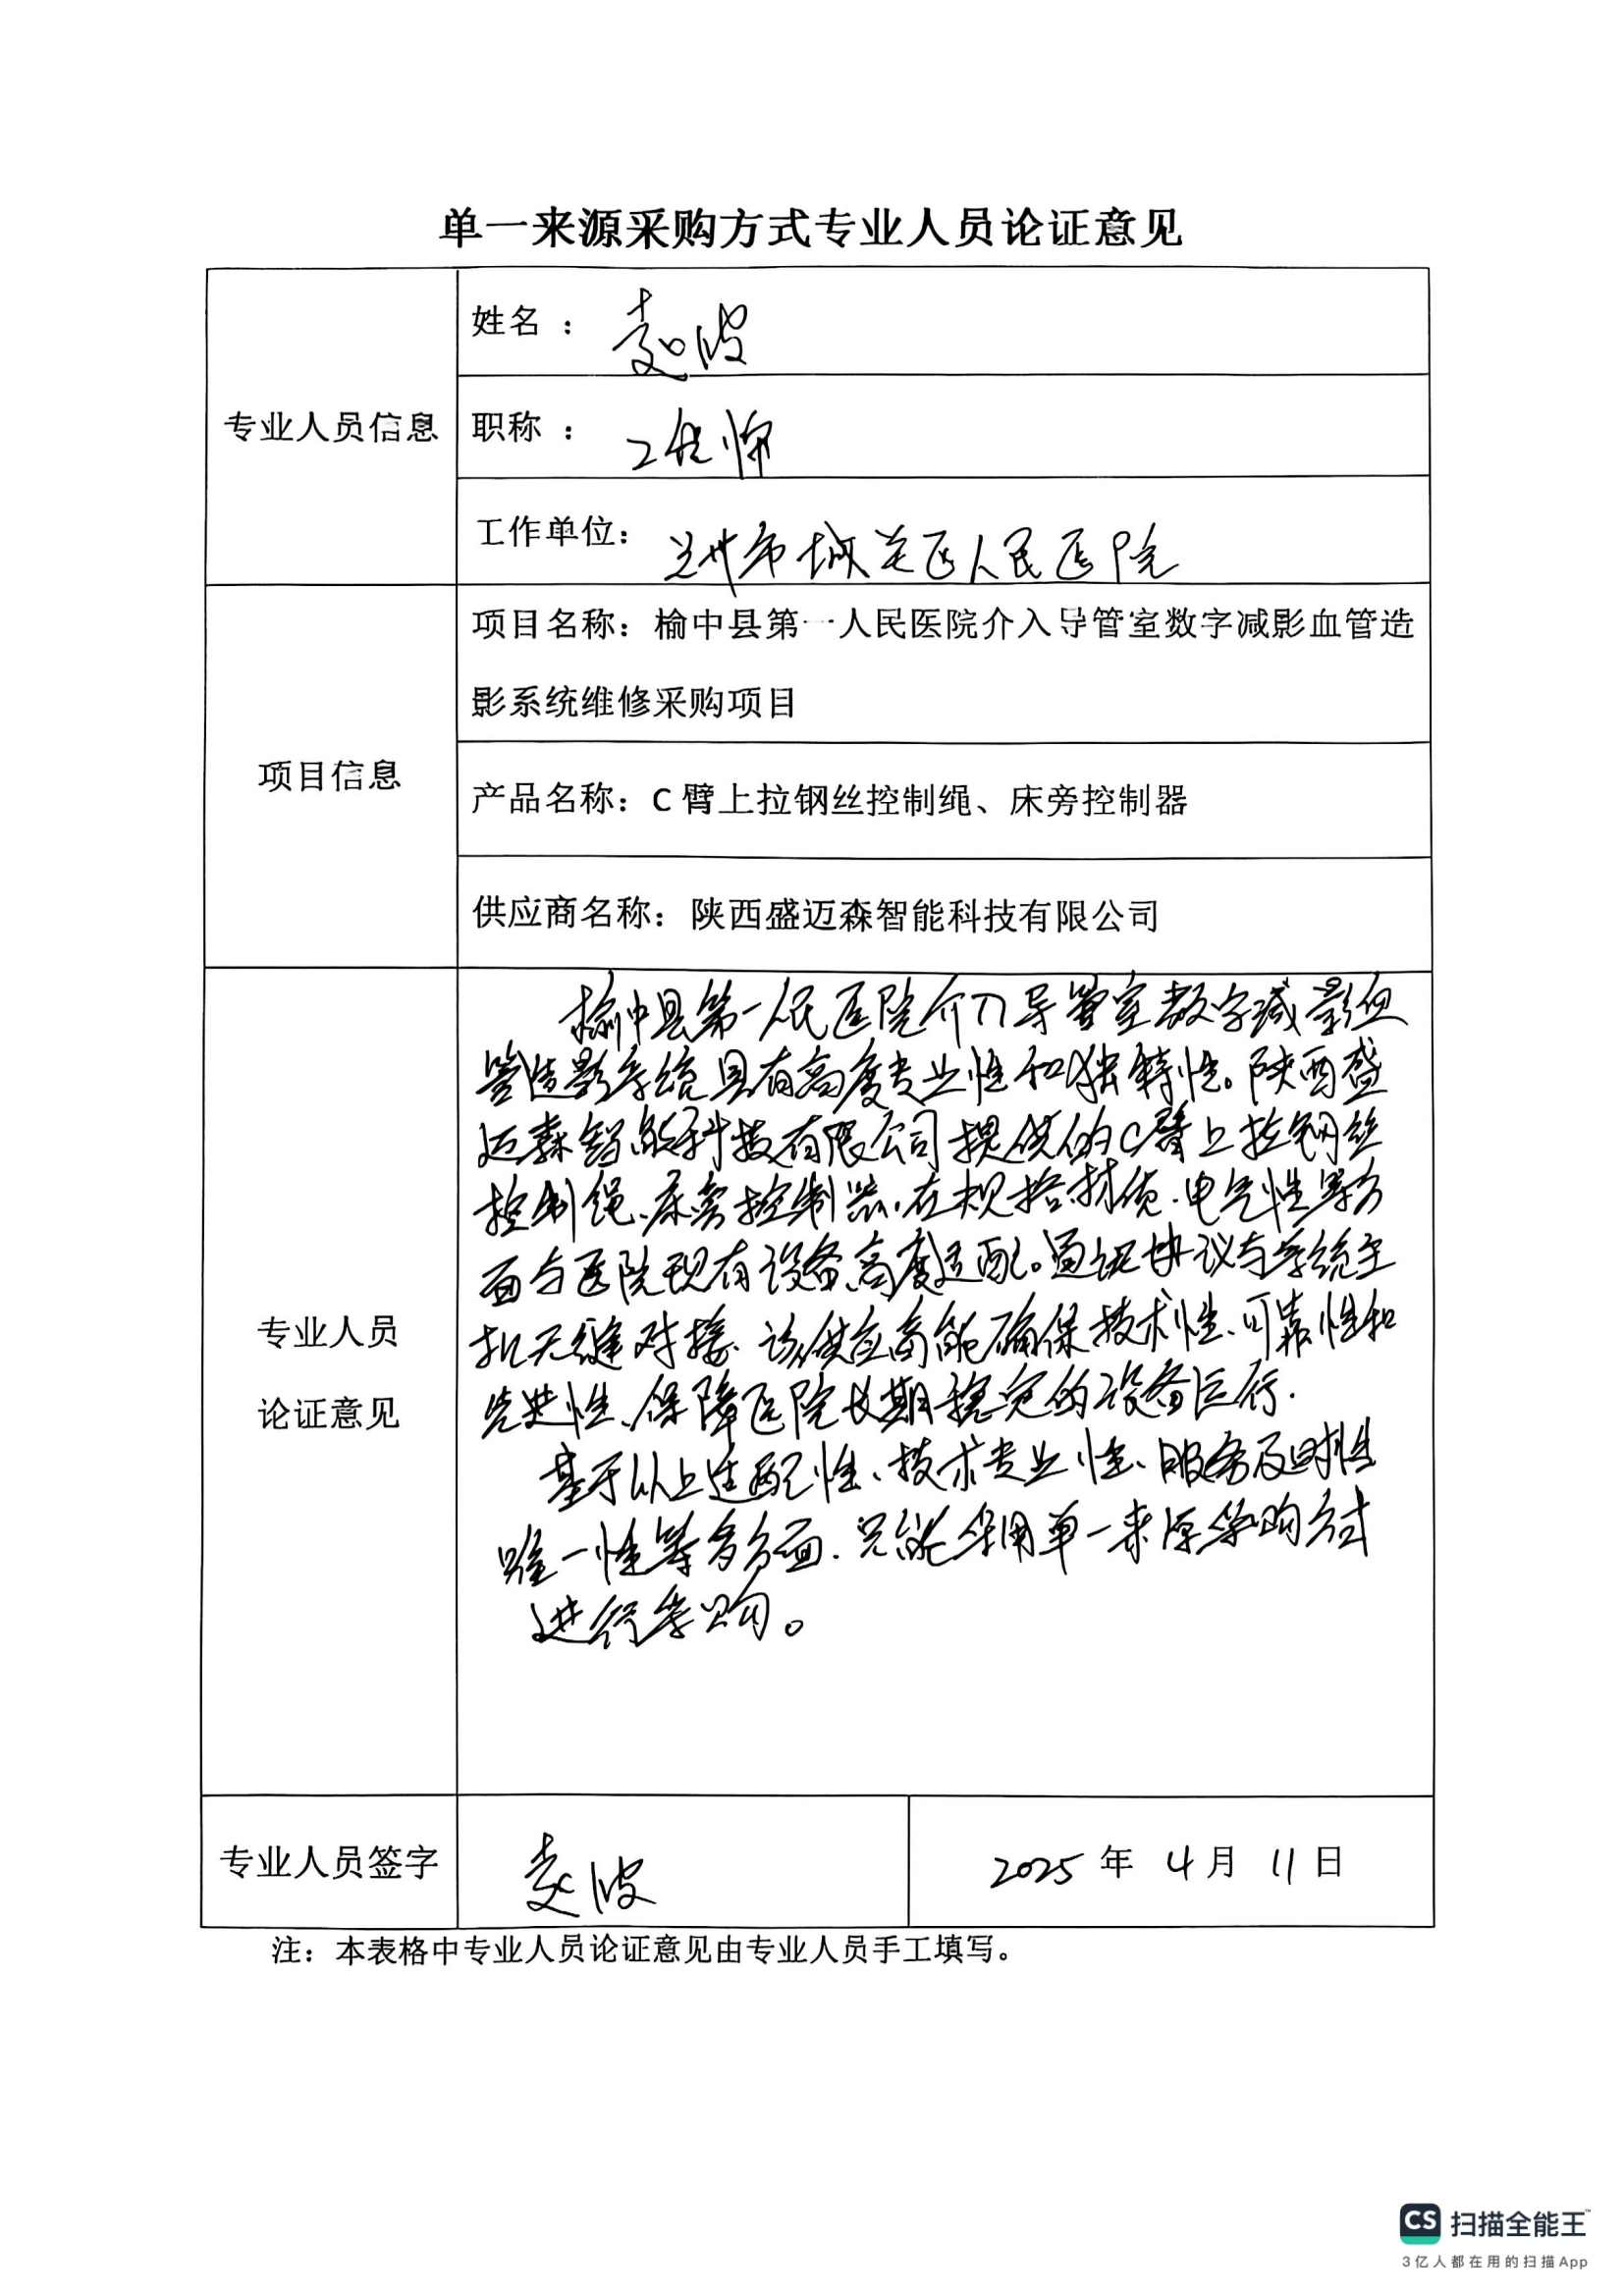 单一来源采购方式专业人员论证意见
专业人员信息
姓名 ：
波
职称 ：工程师
工作单位：兰州市城关区人民医院
项目信息
项目名称：榆中县第一人民医院介入导管室数字减影血管造
影系统维修采购项目
产品名称：C 臂上拉钢丝控制绳、床旁控制器
供应商名称：陕西盛迈森智能科技有限公司
专业人员
论证意见
榆中县第一人民医院介入导管室数字减影血
管造影系统具有高度专业性和独特性。陕西盛
迈森智能科技有限公司提供的C臂上拉钢丝
控制绳、床旁控制器，在规格、材质、电气性等方
面与医院现有设备高度适配。通讯协议与系统主
机无缝对接、该供应商能确保技术性、可靠性和
先进性、保障医院长期稳定的设备运行.
基于以上适配性、技术专业性、服务及时性
唯一性等多方面.只能采用单一来源采购方式
进行采购。
专业人员签字
波
2025 年 4 月 11 日
注：本表格中专业人员论证意见由专业人员手工填写。
CS 扫描全能王™
3亿人都在用的扫描App